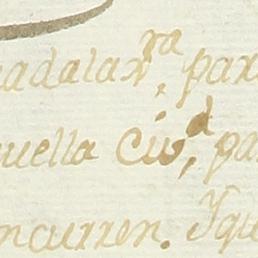 adalax.ra, par
uella Ciud, pa
ncurren. Yque